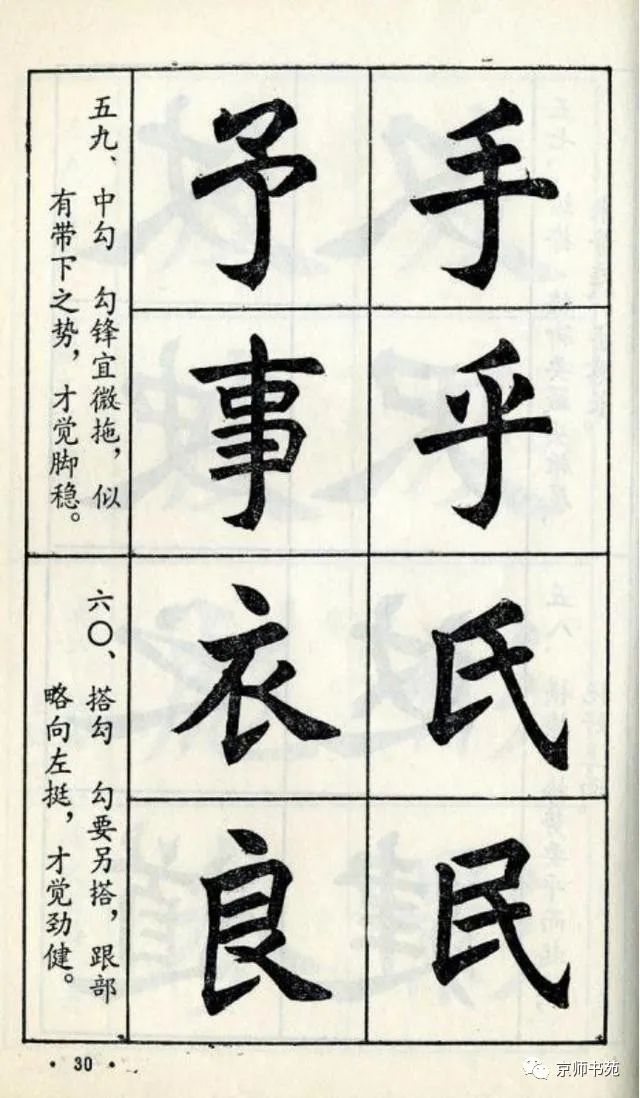 手
乎
予
事
五九、中勾　勾锋宜微拖，似
有带下之势，才觉脚稳。
氏
民
衣
良
六〇、搭勾　勾要另搭，跟部
略向左挺，才觉劲健。
·30·
京师书苑